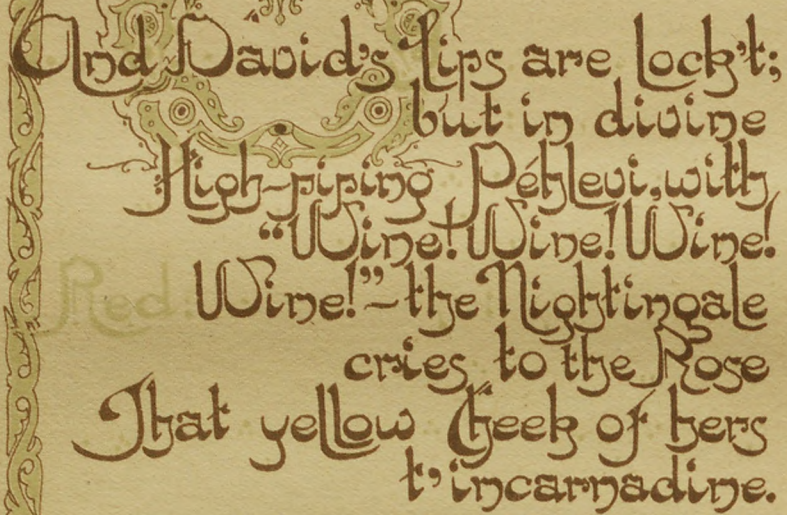 And David's Lips are Lock't;
but in divine
High-piping Péhlevi, with
“Wine! Wine! Wine!
Wine!”—the Nightingale
cries to the Rose
That yellow Cheek of hers
t'incarnadine.
Red